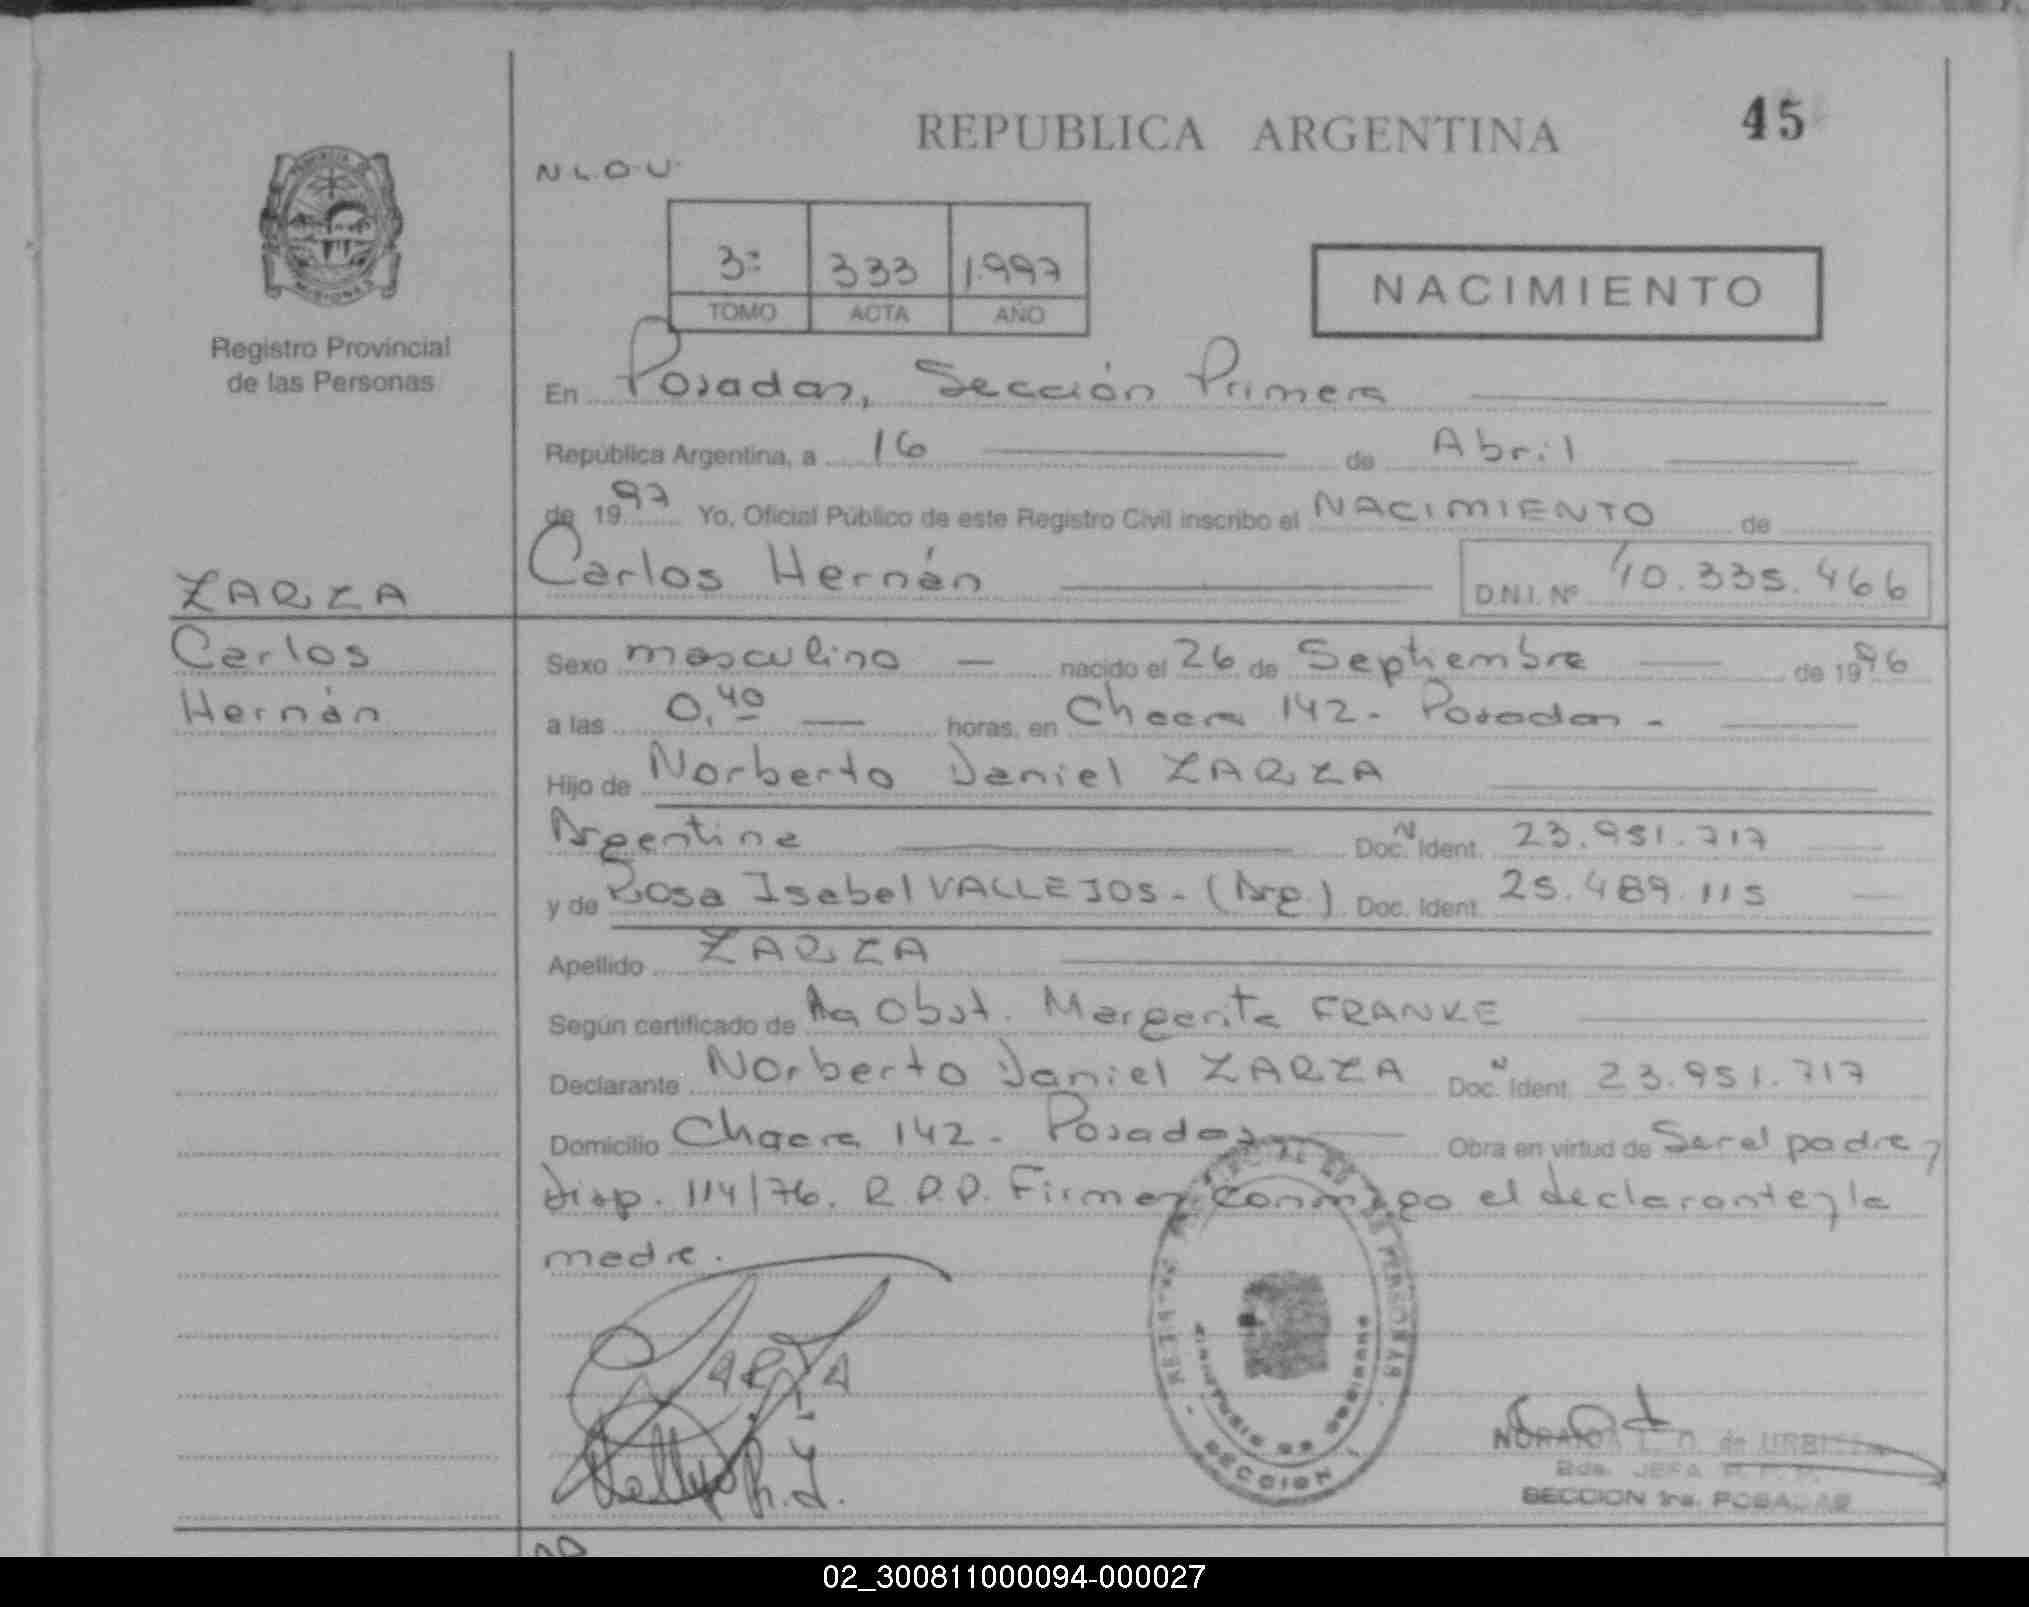 REPUBLICA ARGENTINA 45
N L.O.U.
3º 333 1.997
TOMO ACTA AÑO
NACIMIENTO
Registro Provincial
de las Personas
En Posadas, Sección Primera
República Argentina, a 16 de Abril
de 1997 Yo, Oficial Público de este Registro Civil inscribo el NACIMIENTO de
Carlos Hernán D.N.I. Nº 40.335.466
ZARZA
Carlos
Hernán
Sexo masculino — nacido el 26 de Septiembre de 1996
a las 0,40 — horas, en Chacra 142 - Posadas -
Hijo de Norberto Daniel ZARZA
Argentina Doc. N Ident. 23.951.717
y de Rosa Isabel VALLEJOS - (Arg.) Doc. Ident. 25.489.115
Apellido ZARZA
Según certificado de la Obst. Margarita FRANKE
Declarante Norberto Daniel ZARZA Doc. N Ident. 23.951.717
Domicilio Chacra 142 - Posadas Obra en virtud de Ser el padre y
Disp. 114/76. R.P.P. Firman conmigo el declarante y la
madre.
ZARZA
R.I.
SECCION 1
de URBI
Bda. JEFA R.P.P.
SECCION 1ra. POSADAS
02_300811000094-000027